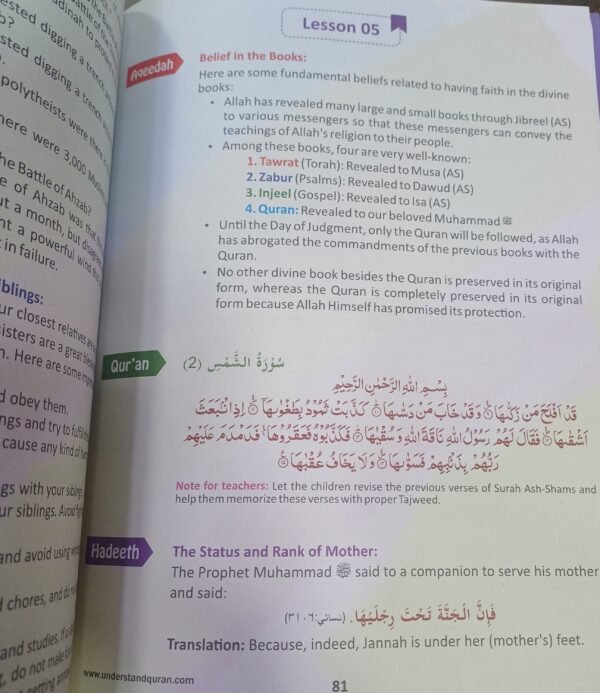 ested digging a trench
b?
sted digging a trench
polytheists were there
here were 3,000
he Battle of Ahzab?
e of Ahzab was
ut a month, but
nt a powerful wind
in failure.
blings:
ur closest relatives
isters are a great
n. Here are some
d obey them.
ngs and try to fulfill
cause any kind of
gs with your sibling
ur siblings. Avoid
and avoid using
d chores, and do
and studies. If a
, do not make
Lesson 05
Aqeedah
Belief in the Books:
Here are some fundamental beliefs related to having faith in the divine
books:
• Allah has revealed many large and small books through Jibreel (AS)
to various messengers so that these messengers can convey the
teachings of Allah's religion to their people.
• Among these books, four are very well-known:
1. Tawrat (Torah): Revealed to Musa (AS)
2. Zabur (Psalms): Revealed to Dawud (AS)
3. Injeel (Gospel): Revealed to Isa (AS)
4. Quran: Revealed to our beloved Muhammad ﷺ
• Until the Day of Judgment, only the Quran will be followed, as Allah
has abrogated the commandments of the previous books with the
Quran.
• No other divine book besides the Quran is preserved in its original
form, whereas the Quran is completely preserved in its original
form because Allah Himself has promised its protection.
Qur'an
سُوْرَةُ الشَّمْس (2)
بِسْمِ اللهِ الرَّحْمٰنِ الرَّحِيْمِ
قَدْ اَفْلَحَ مَنْ زَكّٰىهَا ۝ وَقَدْ خَابَ مَنْ دَسّٰىهَا ۝ كَذَّبَتْ ثَمُوْدُ بِطَغْوٰىهَا ۝ اِذِ انْۢبَعَثَ
اَشْقٰىهَا ۝ فَقَالَ لَهُمْ رَسُوْلُ اللهِ نَاقَةَ اللهِ وَسُقْيٰهَا ۝ فَكَذَّبُوْهُ فَعَقَرُوْهَا فَدَمْدَمَ عَلَيْهِمْ
رَبُّهُمْ بِذَنْۢبِهِمْ فَسَوّٰىهَا ۝ وَلَا يَخَافُ عُقْبٰهَا ۝
Note for teachers: Let the children revise the previous verses of Surah Ash-Shams and
help them memorize these verses with proper Tajweed.
Hadeeth
The Status and Rank of Mother:
The Prophet Muhammad ﷺ said to a companion to serve his mother
and said:
فَإِنَّ الْجَنَّةَ تَحْتَ رِجْلَيْهَا. (نسائي:٣١٠٦)
Translation: Because, indeed, Jannah is under her (mother's) feet.
www.understandquran.com
81